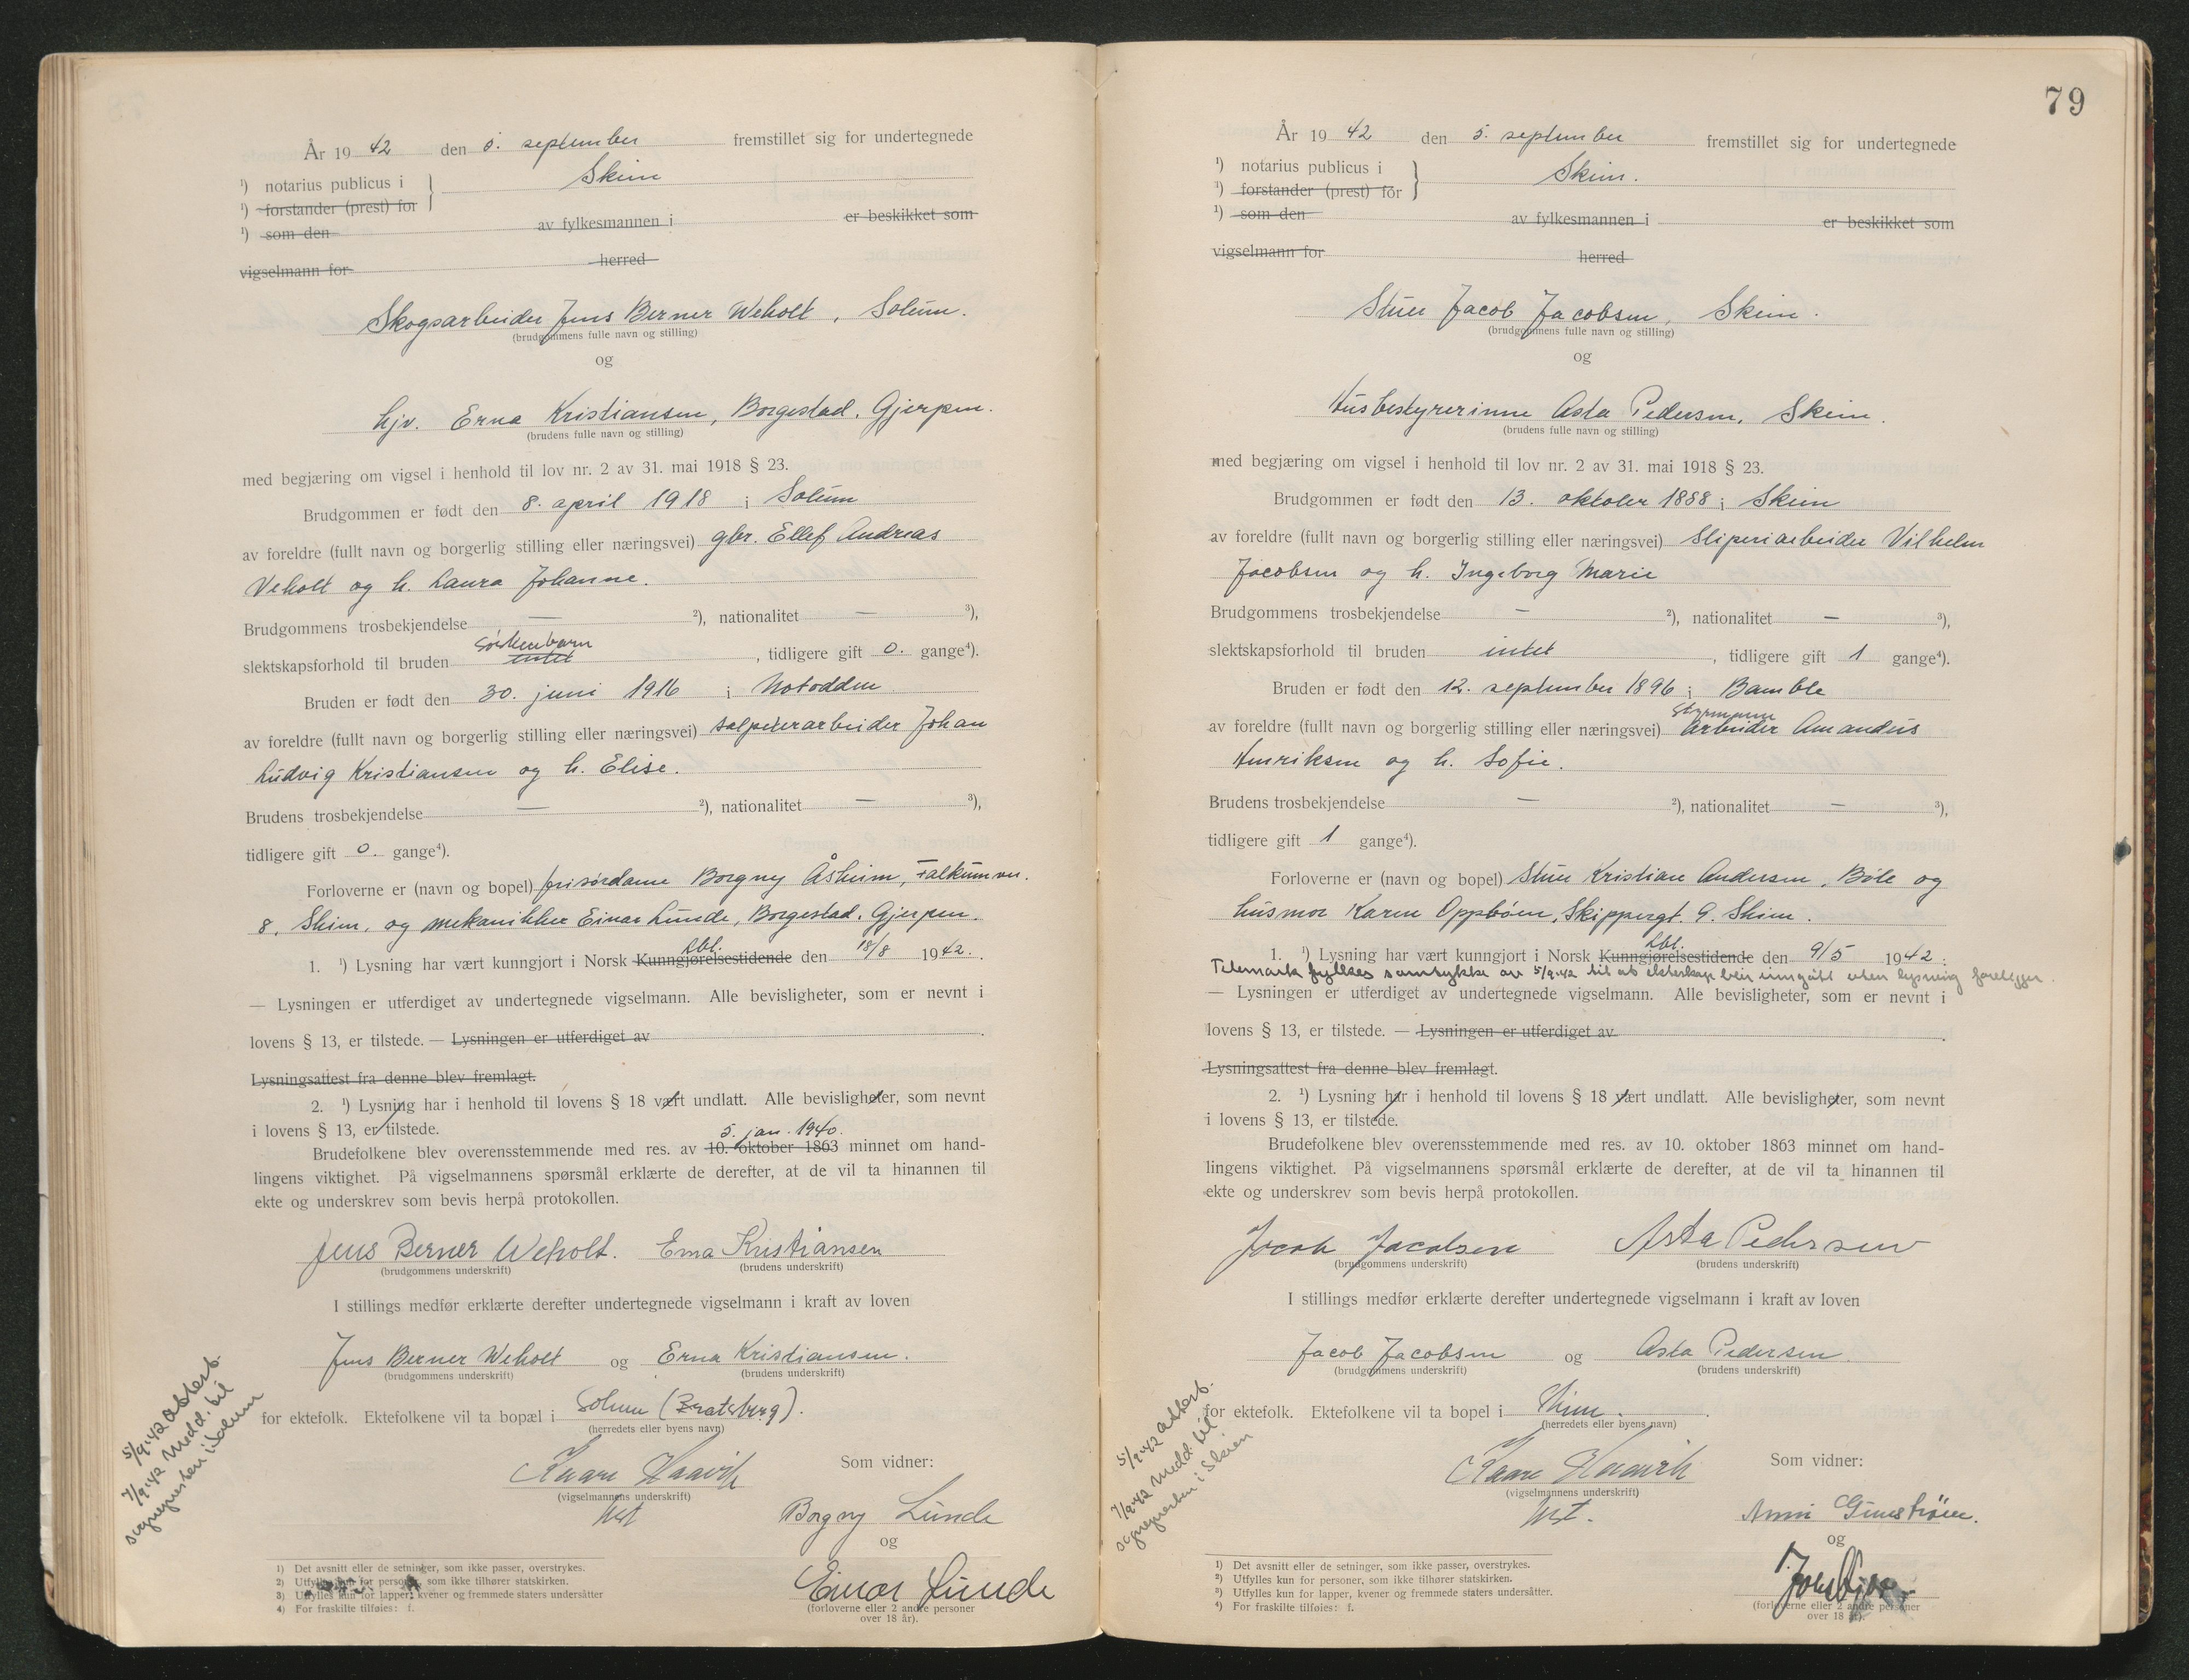 År 19 42 den 5. september fremstillet sig for undertegnede
¹) notarius publicus i } Skien
¹) forstander (prest) for
¹) som den av fylkesmannen i er beskikket som
vigselmann for herred
Skogsarbeider Jens Berner Weholt, Solum.
(brudgommens fulle navn og stilling)
og
hjv. Erna Kristiansen, Borgestad, Gjerpen.
(brudens fulle navn og stilling)
med begjæring om vigsel i henhold til lov nr. 2 av 31. mai 1918 § 23.
Brudgommen er født den 8. april 1918 i Solum
av foreldre (fullt navn og borgerlig stilling eller næringsvei) gbr. Ellef Andreas
Veholt og h. Laura Johanne.
Brudgommens trosbekjendelse — ²), nationalitet — ³),
søskenbarn
slektskapsforhold til bruden intet, tidligere gift 0. gange⁴).
Bruden er født den 30. juni 1916 i Notodden
av foreldre (fullt navn og borgerlig stilling eller næringsvei) salpeterarbeider Johan
Ludvig Kristiansen og h. Elise.
Brudens trosbekjendelse — ²), nationalitet — ³),
tidligere gift 0. gange⁴).
Forloverne er (navn og bopel) frisørdame Borgny Åsheim, Falkumvn.
8, Skien, og mekanikker Einar Lunde, Borgestad, Gjerpen.
Lbl.
1. ¹) Lysning har vært kunngjort i Norsk Kunngjørelsestidende den 18/8 1942.
— Lysningen er utferdiget av undertegnede vigselmann. Alle bevisligheter, som er nevnt i
lovens § 13, er tilstede. — Lysningen er utferdiget av .
Lysningsattest fra denne blev fremlagt.
2. ¹) Lysning har i henhold til lovens § 18 vært undlatt. Alle bevisligheter, som nevnt
i lovens § 13, er tilstede.
5. jan. 1940.
Brudefolkene blev overensstemmende med res. av 10. oktober 1863 minnet om hand-
lingens viktighet. På vigselmannens spørsmål erklærte de derefter, at de vil ta hinannen til
ekte og underskrev som bevis herpå protokollen.
Jens Berner Weholt. Erna Kristiansen
(brudgommens underskrift) (brudens underskrift)
I stillings medfør erklærte derefter undertegnede vigselmann i kraft av loven
Jens Berner Weholt og Erna Kristiansen.
(brudgommens underskrift) (brudens underskrift)
for ektefolk. Ektefolkene vil ta bopæl i Solum (Bratsberg).
(herredets eller byens navn)
5/9.42 attest.
7/9.42 Medd. til
sognepresten i Solum
Kaare Haavik Som vidner:
(vigselmannens underskrift)
Borgny Lunde
og
Einar Lunde
(forloverne eller 2 andre personer
over 18 år).
1) Det avsnitt eller de setninger, som ikke passer, overstrykes.
2) Utfylles kun for personer, som ikke tilhører statskirken.
3) Utfylles kun for lapper, kvener og fremmede staters undersåtter
4) For fraskilte tilføies: f.
79
År 19 42 den 5. september fremstillet sig for undertegnede
¹) notarius publicus i } Skien.
¹) forstander (prest) for
¹) som den av fylkesmannen i er beskikket som
vigselmann for herred
Stuer Jacob Jacobsen, Skien.
(brudgommens fulle navn og stilling)
og
Husbestyrerinne Asta Pedersen, Skien.
(brudens fulle navn og stilling)
med begjæring om vigsel i henhold til lov nr. 2 av 31. mai 1918 § 23.
Brudgommen er født den 13. oktober 1888 i Skien
av foreldre (fullt navn og borgerlig stilling eller næringsvei) Sliperiarbeider Vilhelm
Jacobsen og h. Ingeborg Marie
Brudgommens trosbekjendelse — ²), nationalitet — ³),
slektskapsforhold til bruden intet, tidligere gift 1 gange⁴).
Bruden er født den 12. september 1896 i Bamble
Styrmann
av foreldre (fullt navn og borgerlig stilling eller næringsvei) arbeider Amandus
Henriksen og h. Sofie.
Brudens trosbekjendelse — ²), nationalitet — ³),
tidligere gift 1 gange⁴).
Forloverne er (navn og bopel) Stuer Kristian Andersen, Bøle og
husmor Karen Oppbøen, Skippergt. 9. Skien.
Lbl.
1. ¹) Lysning har vært kunngjort i Norsk Kunngjørelsestidende den 9/5 1942.
Telemark fylkes samtykke av 5/9.42 til at ekteskap blir inngått uten lysning foreligger.
— Lysningen er utferdiget av undertegnede vigselmann. Alle bevisligheter, som er nevnt i
lovens § 13, er tilstede. — Lysningen er utferdiget av .
Lysningsattest fra denne blev fremlagt.
2. ¹) Lysning har i henhold til lovens § 18 vært undlatt. Alle bevisligheter, som nevnt
i lovens § 13, er tilstede.
Brudefolkene blev overensstemmende med res. av 10. oktober 1863 minnet om hand-
lingens viktighet. På vigselmannens spørsmål erklærte de derefter, at de vil ta hinannen til
ekte og underskrev som bevis herpå protokollen.
Jacob Jacobsen Asta Pedersen
(brudgommens underskrift) (brudens underskrift)
I stillings medfør erklærte derefter undertegnede vigselmann i kraft av loven
Jacob Jacobsen og Asta Pedersen.
(brudgommens underskrift) (brudens underskrift)
for ektefolk. Ektefolkene vil ta bopel i Skien.
(herredets eller byens navn)
5/9.42 attest.
7/9.42 Medd. til
sognepresten i Skien
Kaare Haavik Som vidner:
(vigselmannens underskrift)
Anni
og
(forloverne eller 2 andre personer
over 18 år).
1) Det avsnitt eller de setninger, som ikke passer, overstrykes.
2) Utfylles kun for personer, som ikke tilhører statskirken.
3) Utfylles kun for lapper, kvener og fremmede staters undersåtter.
4) For fraskilte tilføies: f.